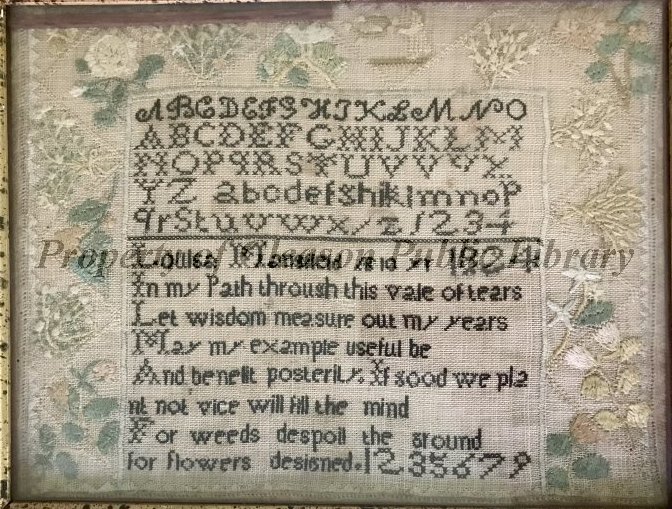 ABCDEFGHIJKLMNO
ABCDEFGHIJKLM
NOPQRSTUVVVX
YZ abcdefghiklmnop
qrstuvwxyz1234
Louisa 1824
Property of Public Library
In my Path through this vale of tears
Let wisdom measure out my years
May my example useful be
And benefit posterity. If good we pla
nt not vice will fill the mind
For weeds despoil the ground
for flowers designed. 1235679